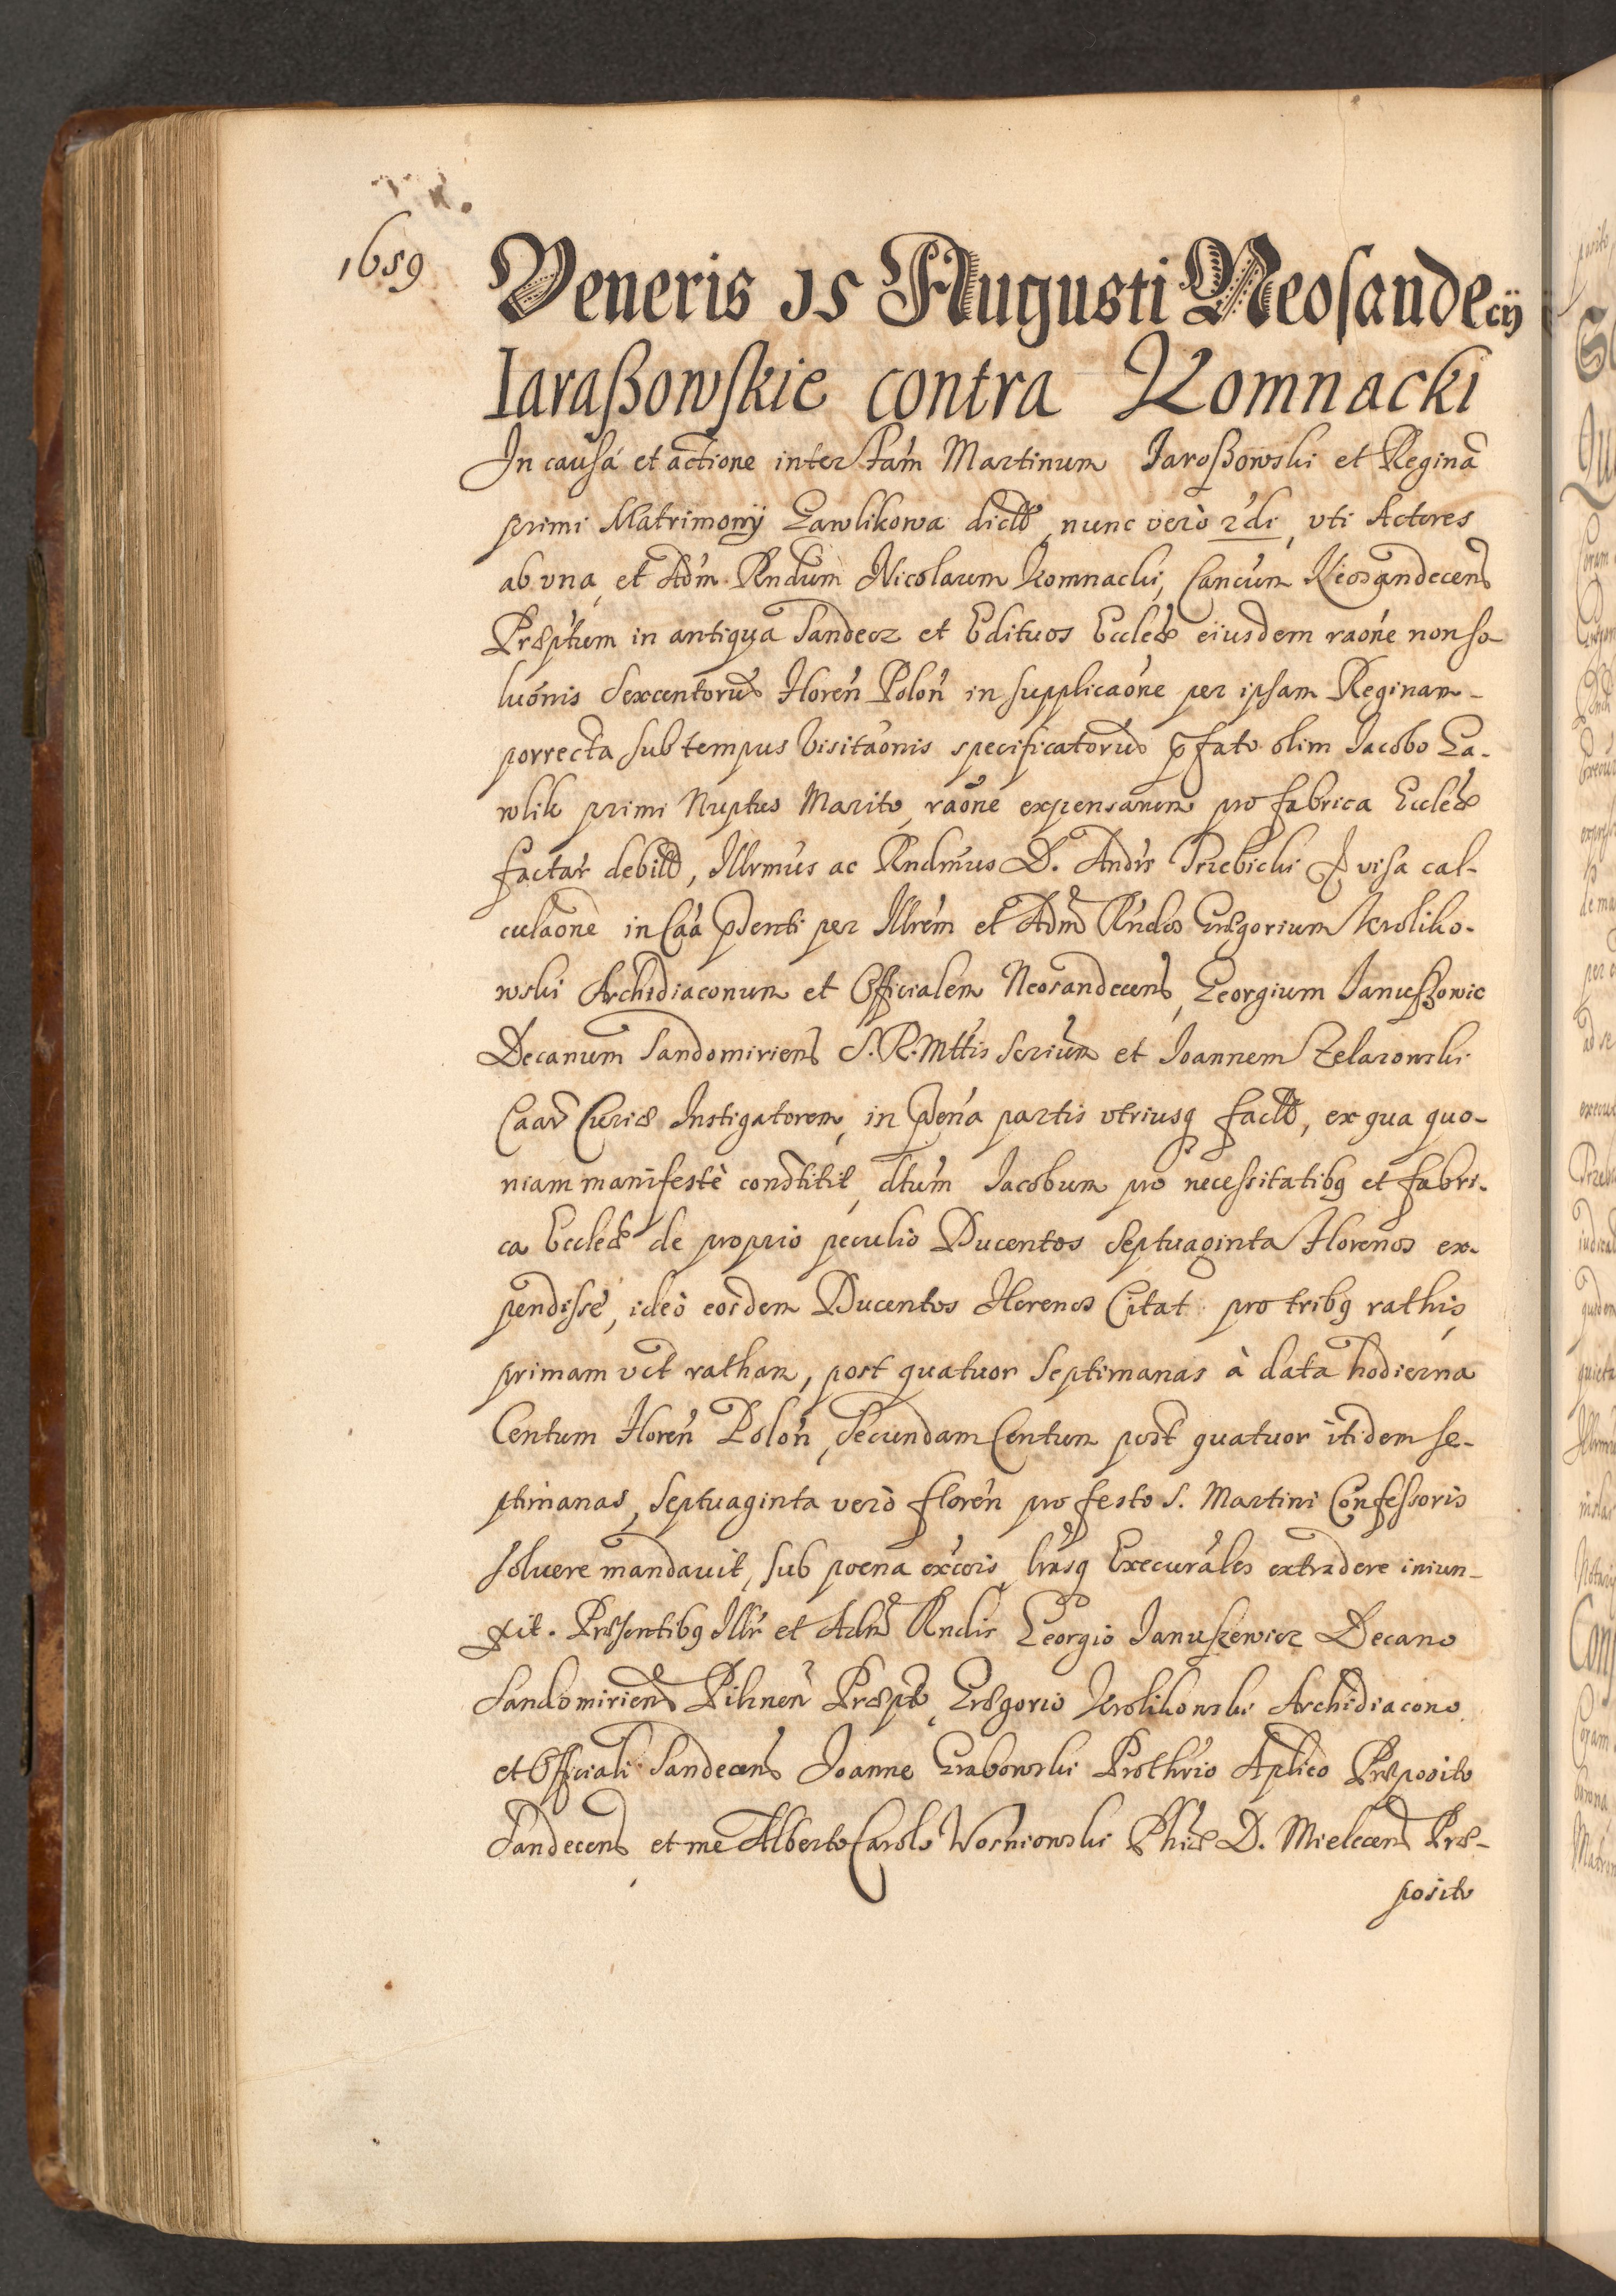 1659
Veneris 15 Augusti Neosandecij
Iaraßowskie contra Komnacki
In causá et actione inter Fam̃ Martinum Iaroßowski et Reginã
primi Matrimonij Gawlikowa dictã, nunc verò 2di, vti Actores
ab vna, et Adm̃ Rndum Nicolaum Komnacki, Cancum Neosandecen̄
Præptum in antiqua Sandecz et Edituos Eccleæ eiusdem raõne non so-
luõnis Sexcentorũ Floreñ Poloñ in supplicaõne per ipsam Reginam-
porrecta sub tempus Visitaõnis specificatorũ p̃fato olim Iacobo Ga-
wlik primi Nuptus Marito, raõne expensarum pro fabrica Eccleæ
factar̃ debitã, Illrmus ac Rndmus D. Andrs Trzebicki Eps visa cal-
culaõne in Cãa p̃senti per Illrem et Adm̃ Rndos Gregorium Kroliko-
wski Archidiaconum et Officialem Neosandecen̄, Georgium Ianußowic
Decanum Sandomirien̄ S.R.Mttis Scrium et Ioannem Zelazowski
Caar̃ Curiæ Instigatorem, in p̃ña partis vtriusq factã, ex qua quo-
niam manifestè constitit, dtum Iacobum pro necessitatibq et fabri-
ca Eccleæ de proprio peculio Ducentos Septuaginta Florenos ex-
pendisse, ideò eosdem Ducentos Florenos Citat pro tribq rathis,
primam vct ratham, post quatuor Septimanas à data hodierna
Centum Floreñ Poloñ, Secundam Centum post quatuor itidem se-
ptimanas, Septuaginta verò floreñ pro festo S. Martini Confessoris
soluere mandauit, sub poena excois, lrasq Execurales extradere iniun-
xit. Præsentibq Illr et Adm̃ Rndis Georgio Ianuszewicz Decano
Sandomirien̄ Pilznen̄ Præpto, Gregorio Krolikowski Archidiacono
et Officiali Sandecen̄ Joanne Grabowski Prothrio Aplico Præposito
Sandecen̄ et me Alberto Carolo Wosniowski Phiæ D. Mielecen̄ Præ-
posito